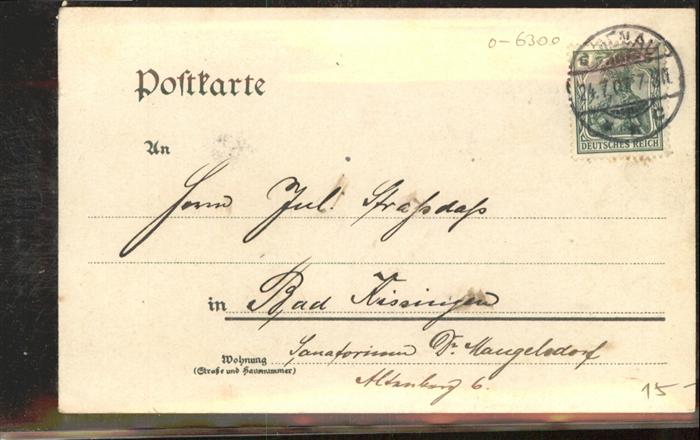 o-6300
ILMENAU
24.7.07 7-8N
5
DEUTSCHES REICH
Postkarte
An
Herrn Jul. Straßdaß
in Bad Kissingen
Wohnung
(Straße und Hausnummer)
Sanatorium Dr. Mangelsdorf
Altenberg 6.
15-